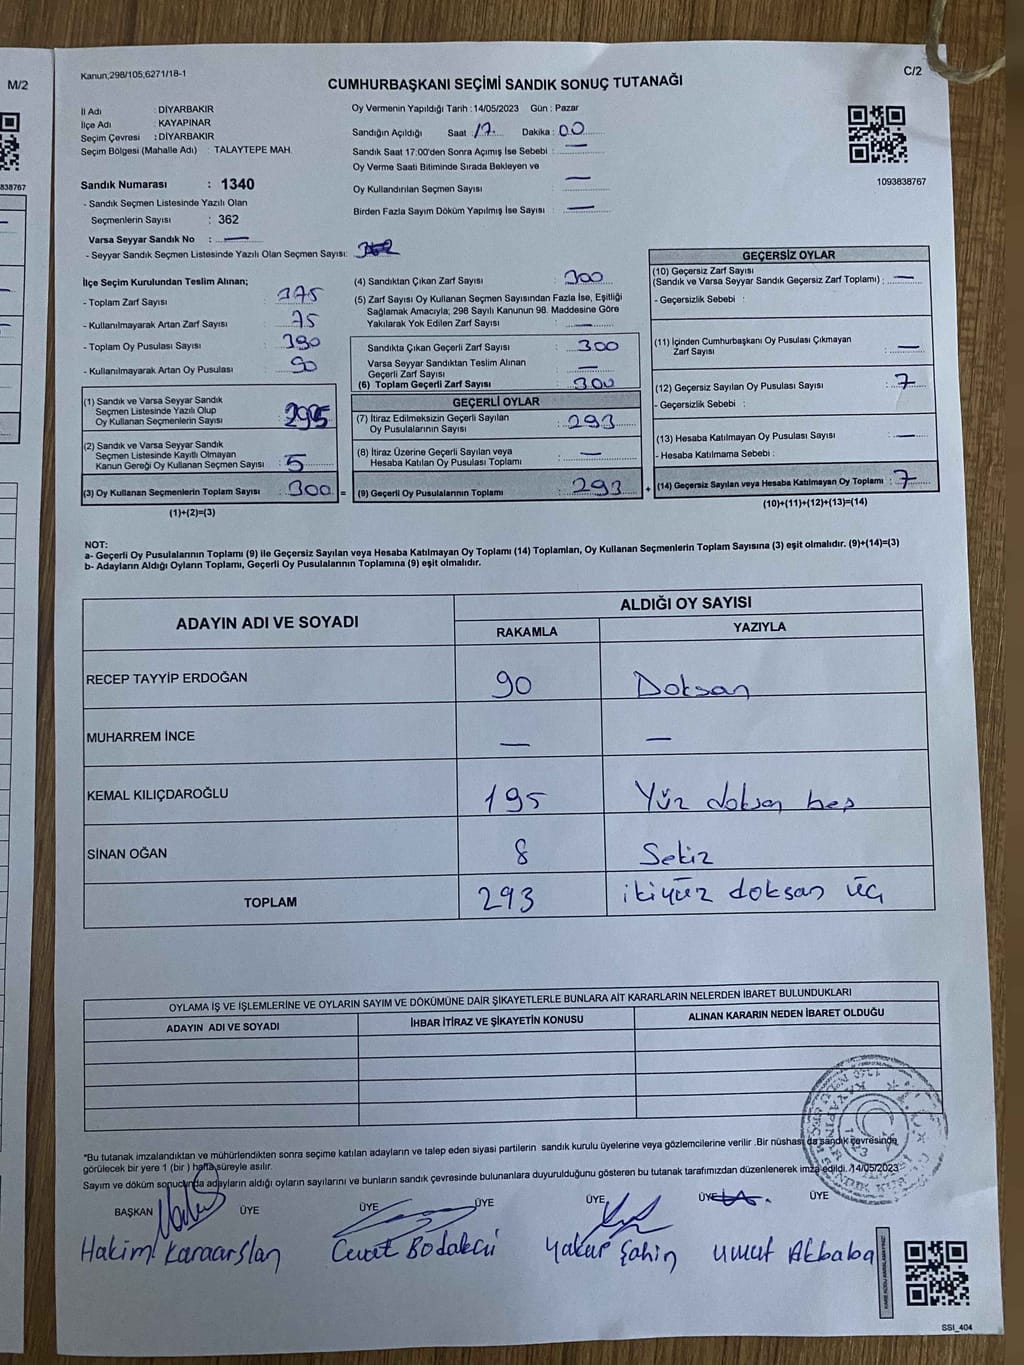 M/2
838767
Kanun,298/105,6271/18-1
C/2
CUMHURBAŞKANI SEÇİMİ SANDIK SONUÇ TUTANAĞI
İl Adı : DİYARBAKIR
İlçe Adı : KAYAPINAR
Seçim Çevresi : DİYARBAKIR
Seçim Bölgesi (Mahalle Adı) : TALAYTEPE MAH.
Sandık Numarası : 1340
- Sandık Seçmen Listesinde Yazılı Olan
Seçmenlerin Sayısı : 362
Varsa Seyyar Sandık No : —
- Seyyar Sandık Seçmen Listesinde Yazılı Olan Seçmen Sayısı:
Oy Vermenin Yapıldığı Tarih : 14/05/2023 Gün : Pazar
Sandığın Açıldığı Saat : 17 Dakika : 00
Sandık Saat 17:00'den Sonra Açımış İse Sebebi : —
Oy Verme Saati Bitiminde Sırada Bekleyen ve
Oy Kullandırılan Seçmen Sayısı : —
Birden Fazla Sayım Döküm Yapılmış İse Sayısı : —
1093838767
İlçe Seçim Kurulundan Teslim Alınan;
- Toplam Zarf Sayısı : 375
- Kullanılmayarak Artan Zarf Sayısı : 75
- Toplam Oy Pusulası Sayısı : 390
- Kullanılmayarak Artan Oy Pusulası : 90
(1) Sandık ve Varsa Seyyar Sandık
Seçmen Listesinde Yazılı Olup
Oy Kullanan Seçmenlerin Sayısı : 295
(2) Sandık ve Varsa Seyyar Sandık
Seçmen Listesinde Kayıtlı Olmayan
Kanun Gereği Oy Kullanan Seçmen Sayısı : 5
(3) Oy Kullanan Seçmenlerin Toplam Sayısı : 300 =
(1)+(2)=(3)
(4) Sandıktan Çıkan Zarf Sayısı : 300
(5) Zarf Sayısı Oy Kullanan Seçmen Sayısından Fazla İse, Eşitliği
Sağlamak Amacıyla; 298 Sayılı Kanunun 98. Maddesine Göre
Yakılarak Yok Edilen Zarf Sayısı : —
Sandıkta Çıkan Geçerli Zarf Sayısı : 300
Varsa Seyyar Sandıktan Teslim Alınan
Geçerli Zarf Sayısı : —
(6) Toplam Geçerli Zarf Sayısı : 300
GEÇERLİ OYLAR
(7) İtiraz Edilmeksizin Geçerli Sayılan
Oy Pusulalarının Sayısı : 293
(8) İtiraz Üzerine Geçerli Sayılan veya
Hesaba Katılan Oy Pusulası Toplamı : —
(9) Geçerli Oy Pusulalarının Toplamı : 293 +
GEÇERSİZ OYLAR
(10) Geçersiz Zarf Sayısı
(Sandık ve Varsa Seyyar Sandık Geçersiz Zarf Toplamı) : —
- Geçersizlik Sebebi :
(11) İçinden Cumhurbaşkanı Oy Pusulası Çıkmayan
Zarf Sayısı : —
(12) Geçersiz Sayılan Oy Pusulası Sayısı : 7
- Geçersizlik Sebebi :
(13) Hesaba Katılmayan Oy Pusulası Sayısı : —
- Hesaba Katılmama Sebebi :
(14) Geçersiz Sayılan veya Hesaba Katılmayan Oy Toplamı : 7
(10)+(11)+(12)+(13)=(14)
NOT:
a- Geçerli Oy Pusulalarının Toplamı (9) ile Geçersiz Sayılan veya Hesaba Katılmayan Oy Toplamı (14) Toplamları, Oy Kullanan Seçmenlerin Toplam Sayısına (3) eşit olmalıdır. (9)+(14)=(3)
b- Adayların Aldığı Oyların Toplamı, Geçerli Oy Pusulalarının Toplamına (9) eşit olmalıdır.
ADAYIN ADI VE SOYADI
ALDIĞI OY SAYISI
RAKAMLA YAZIYLA
RECEP TAYYİP ERDOĞAN 90 Doksan
MUHARREM İNCE — —
KEMAL KILIÇDAROĞLU 195 Yüz doksan beş
SİNAN OĞAN 8 Sekiz
TOPLAM 293 ikiyüz doksan üç
OYLAMA İŞ VE İŞLEMLERİNE VE OYLARIN SAYIM VE DÖKÜMÜNE DAİR ŞİKAYETLERLE BUNLARA AİT KARARLARIN NELERDEN İBARET BULUNDUKLARI
ADAYIN ADI VE SOYADI İHBAR İTİRAZ VE ŞİKAYETİN KONUSU ALINAN KARARIN NEDEN İBARET OLDUĞU
*Bu tutanak imzalandıktan ve mühürlendikten sonra seçime katılan adayların ve talep eden siyasi partilerin sandık kurulu üyelerine veya gözlemcilerine verilir .Bir nüshası da sandık çevresinde
görülecek bir yere 1 (bir ) hafta süreyle asılır.
Sayım ve döküm sonucunda adayların aldığı oyların sayılarını ve bunların sandık çevresinde bulunanlara duyurulduğunu gösteren bu tutanak tarafımızdan düzenlenerek imza edildi. 14/05/2023
BAŞKAN ÜYE ÜYE ÜYE ÜYE ÜYE ÜYE
Hakim Karaarslan Cevat Bodakcı Yakup Şahin Umut Akbaba
SSI_404